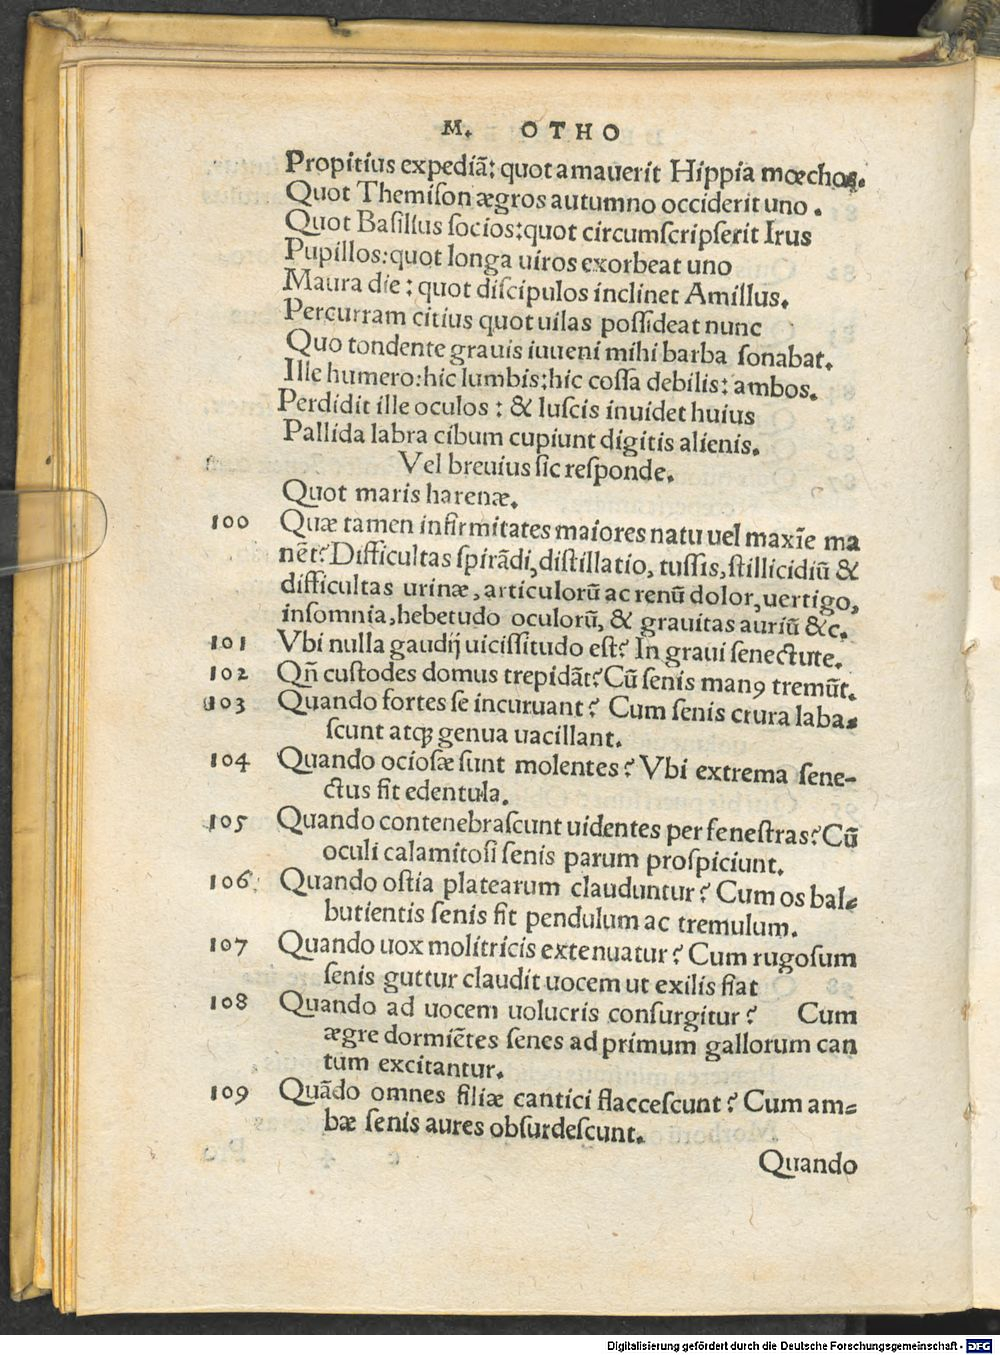 M. OTHO
Propitius expediã: quot amauerit Hippia mœchos.
Quot Themiſon ægros autumno occiderit uno.
Quot Baſillus ſocios: quot circumſcripſerit Irus
Pupillos: quot longa uiros exorbeat uno
Maura die: quot diſcipulos inclinet Amillus.
Percurram citius quot uilas poſſideat nunc
Quo tondente grauis iuueni mihi barba ſonabat.
Ille humero: hic lumbis: hic coſſa debilis: ambos.
Perdidit ille oculos: & luſcis inuidet huius
Pallida labra cibum cupiunt digitis alienis.
Vel breuius ſic reſponde.
Quot maris harenæ.
100 Quæ tamen infirmitates maiores natu uel maxĩe ma
nẽt? Difficultas ſpirãdi, diſtillatio, tuſſis, ſtillicidiũ &
difficultas urinæ, articulorũ ac renũ dolor, uertigo,
inſomnia, hebetudo oculorũ, & grauitas auriũ &c.
101 Vbi nulla gaudij uiciſſitudo eſt? In graui ſenectute.
102 Qñ cuſtodes domus trepidãt? Cũ ſenis manꝯ tremũt.
103 Quando fortes ſe incuruant? Cum ſenis crura laba-
ſcunt atqꝫ genua uacillant.
104 Quando ocioſæ ſunt molentes? Vbi extrema ſene-
ctus fit edentula.
105 Quando contenebraſcunt uidentes per feneſtras? Cũ
oculi calamitoſi ſenis parum proſpiciunt.
106 Quando oſtia platearum clauduntur? Cum os bal-
butientis ſenis fit pendulum ac tremulum.
107 Quando uox molitricis extenuatur? Cum rugoſum
ſenis guttur claudit uocem ut exilis fiat
108 Quando ad uocem uolucris conſurgitur? Cum
ægre dormiẽtes ſenes ad primum gallorum can
tum excitantur.
109 Quãdo omnes filiæ cantici flacceſcunt? Cum am-
bæ ſenis aures obſurdeſcunt.
Quando
Digitalisierung gefördert durch die Deutsche Forschungsgemeinschaft - DFG